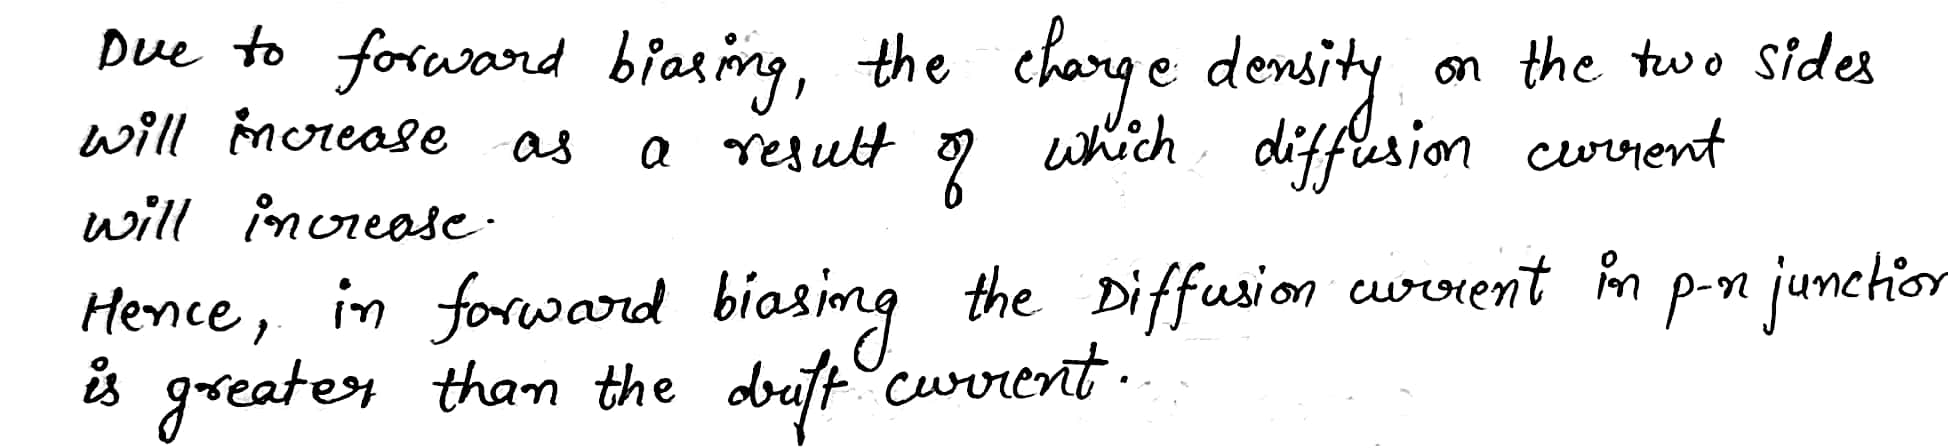 Due to forward biasing, the charge density on the two sides
will increase as a result of which diffusion current
will increase.
Hence, in forward biasing the Diffusion current in p-n junction
is greater than the drift current.